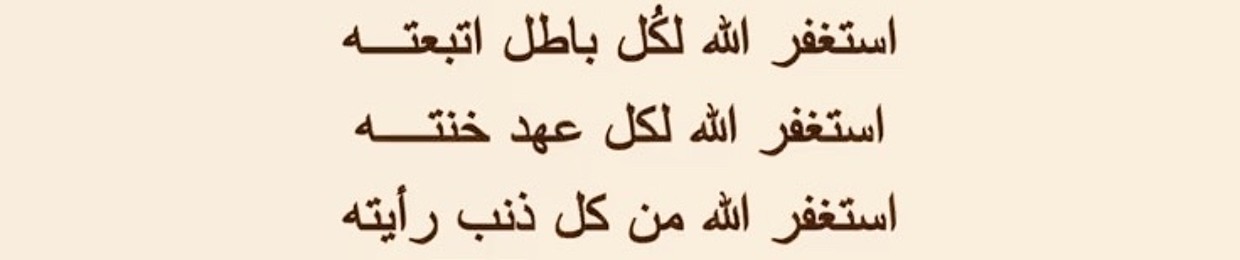 استغفر الله لكُل باطل اتبعتـــه
استغفر الله لكل عهد خنتــــه
استغفر الله من كل ذنب رأيته